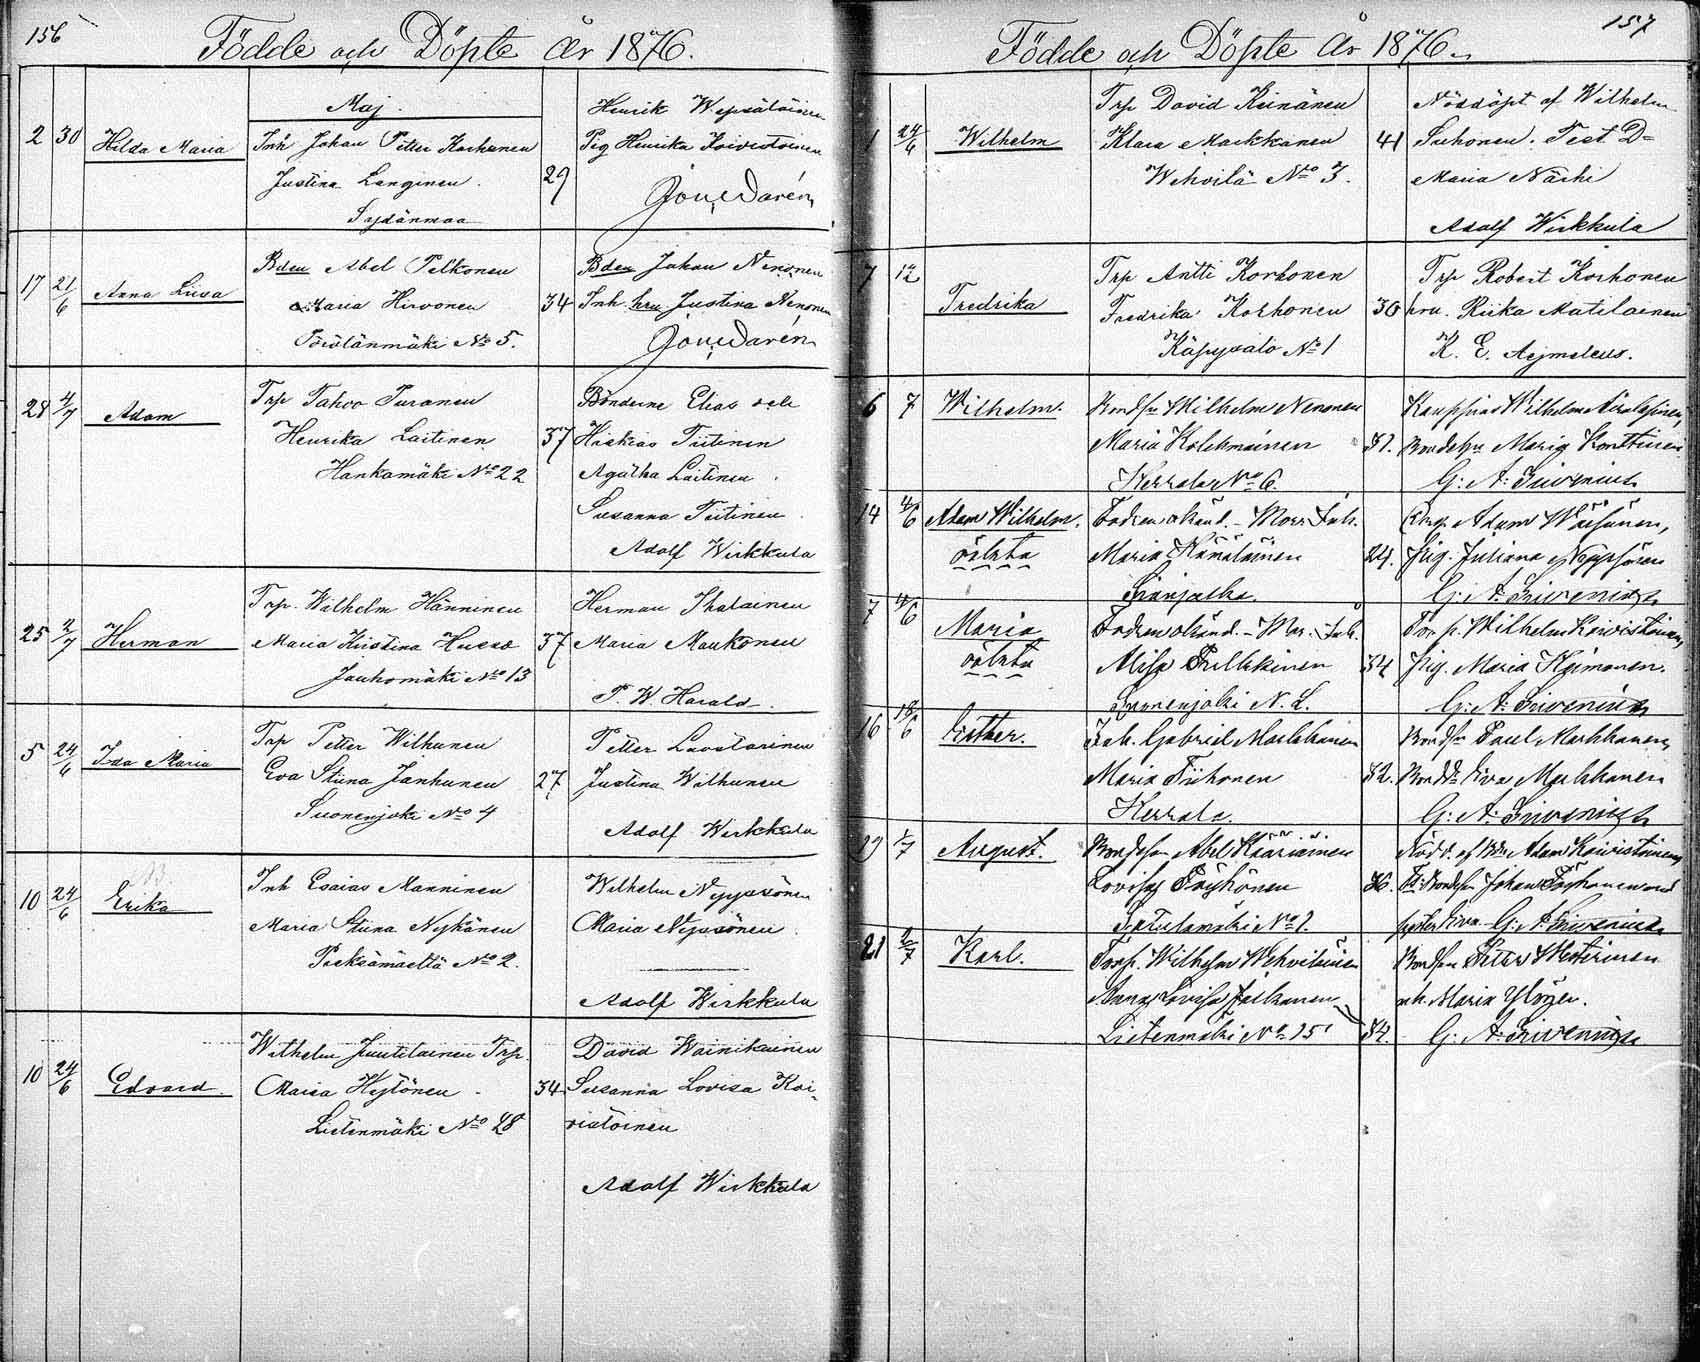 156
Födde och Döpte År 1876.
Maj.
2 30 Hilda Maria
Inh Johan Petter Korhonen
Justina Langinen.
Sydänmaa
29
Henrik Wepsäläinen
Pig Henrika Koivistoinen
Joh. Warén
17 21/6 Anna Liisa
Bden Abel Pelkonen
Maria Hirvonen
Pörölänmäki No 5.
34
Bden Johan Nenonen
Inh. hru Justina Nenonen
Joh. Warén
28 4/7 Adam
Trp Pahvo Turanen
Henrika Laitinen
Hankamäki No 22
37
Bönderne Elias och
Hiskias Tiitinen
Agatha Laitinen
Susanna Tiitinen
Adolf Wirkkula
25 2/7 Herman
Trp. Wilhelm Hänninen
Maria Kristina Husso
Jauhomäki No 13
37
Herman Ihalainen
Maria Maukonen
P. W. Harald.
5 24/6 Ida Maria
Trp Petter Wilhunen
Eva Stiina Janhunen
Suonenjoki No 4
27
Petter Lavstarinen
Justina Wilhunen
Adolf Wirkkula
10 24/6 Erika
Inh Esaias Manninen
Maria Stiina Nykänen
Pieksämaellä No 2.
Wilhelm Nyyssönen
Maria Nyyssönen
Adolf Wirkkula
10 24/6 Edvard
Wilhelm Juutilainen Trp
Maria Hytönen
Lietenmäki No 28
34
David Wainikainen
Susanna Lovisa Koi-
vistoinen
Adolf Wirkkula
157
Födde och Döpte År 1876.
1 24/6 Wilhelm
Trp David Keinänen
Klara Markkanen
Wehvilä No 3.
41
Nöddöpt af Wilhelm
Suhonen. Test D=
Maria Närhi
Adolf Wirkkula
7 12 Fredrika
Trp Antti Korhonen
Fredrika Korhonen
Käpysalo No 1
30
Trp Robert Korhonen
hru. Riika Matilainen
K. E. Aejmeleus.
6 7 Wilhelm.
Bondsn Wilhelm Nenonen
Maria Kolehmainen
Herrala No 6.
37.
Wilhelm
Maria Konttinen
G: A: Snivenius
14 4/6 Adam Wilhelm.
oäkta
Fadren okänd. - Mor: Inh.
Maria Hämäläinen
24.
Adam Wäisänen,
Pig. Juliana Nyyssönen
G: A: Snivenius
7 4/6 Maria
oäkta
Fadren okänd. - Mor: Inh.
Alisa Pulkkinen
Suonenjoki N. 2.
34
Torp. Wilhelm Koivistoinen,
Pig. Maria Heimonen.
G: A: Snivenius
16 18/6 Esther.
Inh. Gabriel Markkanen
Maria Tiihonen
Herrala.
32.
Bondsn Paul Markkanen
Eva Markkanen
G: A: Snivenius
29 1/7 August.
Bondson Abel Kääriäinen
Lovisa Pöyhönen
36.
Nödd. af Adam Koivistoinen
Johan Pöyhönen
G: A: Snivenius
21 2/7 Karl.
Torp. Wilhelm Wehviläinen
Anna Lovisa Jalkanen
Lietenmäki No 15
34.
Bondson Petter Westerinen
och Maria Ylönen.
G: A: Snivenius